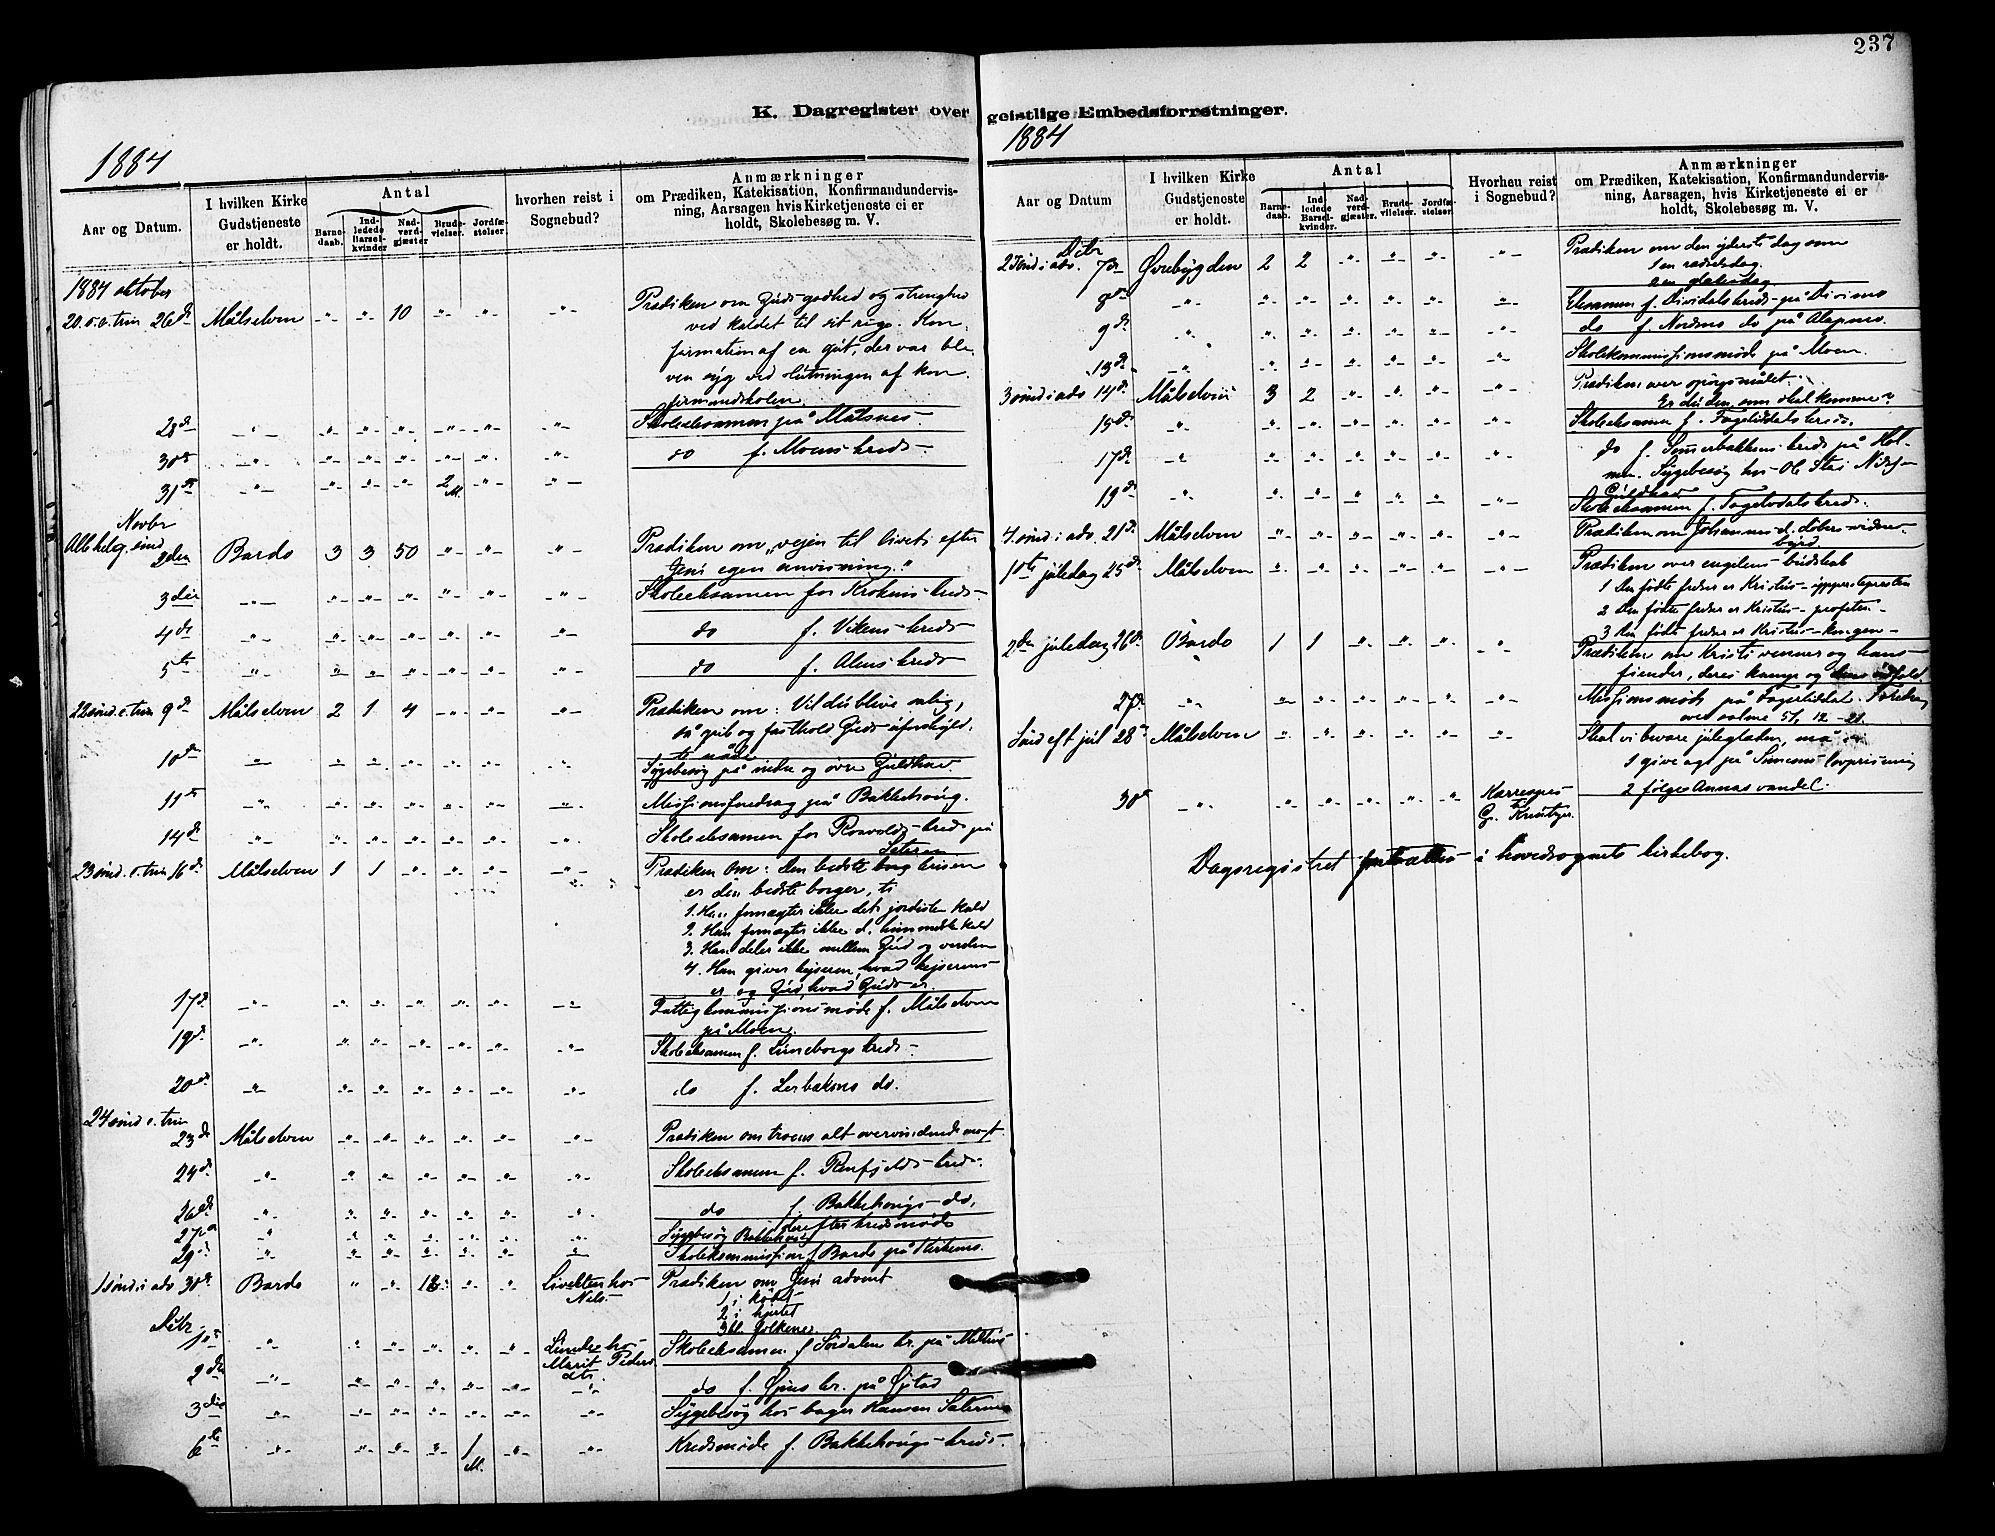 237
K. Dagregister over geistlige Embedsforretninger.
1884
Aar og Datum.
I hvilken Kirke Gudstjeneste er holdt.
Antal
Barnedaab.
Indledede Barselkvinder
Nadverdgjæster
Brudevielser.
Jordfæstelser.
hvorhen reist i Sognebud?
Anmærkninger
om Prædiken, Katekisation, Konfirmandundervisning, Aarsagen hvis Kirketjeneste ei er holdt, Skolebesøg m. V.
1884 oktober
20. s. e. trin 26de Målselven -"- -"- 10 -"- -"- -"- Prædiken om Guds godhed og strenghed
ved kaldet til sit rige. Kon-
firmation af en gut, der var ble-
ven syg ved slutningen af kon-
firmandskolen.
28de -"- -"- -"- -"- -"- -"- -"- Skoleeksamen på Målsnes.
30te -"- -"- -"- -"- -"- -"- -"- do f. Moens kreds.
31te -"- -"- -"- -"- 2 M. -"- -"-
Novbr
Allehelg. sønd. 2den Bardo 3 3 50 -"- -"- -"- Prædiken om "vejen til livet efter
Jesu egen anvisning."
3die -"- -"- -"- -"- -"- -"- -"- Skoleeksamen for Krokens kreds
4de -"- -"- -"- -"- -"- -"- -"- do f. Vikens kreds
5te -"- -"- -"- -"- -"- -"- -"- do f. Alens kreds
22 sønd. e. trin 9de Målselven 2 1 4 -"- -"- -"- Prædiken om: Vil du blive salig,
så grib og fasthold Guds uforskyld-
te nåde
10de -"- -"- -"- -"- -"- -"- -"- Sygebesøg på nedre og øvre Guldhav.
11te -"- -"- -"- -"- -"- -"- -"- Missionsforedrag på Bakkehaug.
14de -"- -"- -"- -"- -"- -"- -"- Skoleeksamen for Rosvolds kreds på
Sæteren
23 sønd. e. trin 16de Målselven 1 1 -"- -"- -"- -"- Prædiken om: Den bedste kristen
er den bedste borger, ti
1. Han fornægter ikke det jordiske kald
2. Han fornægter ikke d. himmelske kald
3. Han deler ikke mellem Gud og verden
4. Han giver kejseren, hvad kejserens
er og Gud, hvad Guds er.
17de -"- -"- -"- -"- -"- -"- -"- Fattigkommissionsmøde f. Målselven
på Moen.
19de -"- -"- -"- -"- -"- -"- -"- Skoleeksamen f. Luneborgs kreds.
20de -"- -"- -"- -"- -"- -"- -"- do f. do.
24 sønd. e. trin
23de Målselven -"- -"- -"- -"- -"- -"- Prædiken om troens alt overvindende magt.
24de -"- -"- -"- -"- -"- -"- -"- Skoleeksamen f. kreds.
26de -"- -"- -"- -"- -"- -"- -"- do f. Bakkehaugs do.
27de -"- -"- -"- -"- -"- -"- -"- Sygebesøg Bakkehaug derefter kredsmøde
29de -"- -"- -"- -"- -"- -"- -"- Skolekommission f. Bardo på Kirkemo.
1 sønd. i adv. 30te Bardo -"- -"- 12 -"- -"- hos Nils Prædiken om Jesu advent
1 i kødet
2 i hjertet
3 bl. folkene.
Debr.
1ste -"- -"- -"- -"- -"- -"- hos Marit Pedersdtr. Skoleeksamen f. Sørdalens kr. på
2den -"- -"- -"- -"- -"- -"- -"- do f. kr. på
3die -"- -"- -"- -"- -"- -"- -"- Sygebesøg hos bager Hansen Sæteren
6te -"- -"- -"- -"- 1 M. -"- -"- Kredsmøde f. Bakkehaugs kreds.
1884
Aar og Datum
I hvilken Kirke Gudstjeneste er holdt.
Antal
Barnedaab.
Indledede Barselkvinder.
Nadverdgjæster.
Brudevielser.
Jordfæstelser.
Hvorheu reist i Sognebud?
Anmærkninger
om Prædiken, Katekisation, Konfirmandundervisning, Aarsagen, hvis Kirketjeneste ei er holdt, Skolebesøg m. V.
Debr
2 sønd i adv. 7de Øvrebygden 2 2 -"- -"- -"- -"- Prædiken om den yderste dag som
1 en rædselsdag
2 en glædesdag
8de -"- -"- -"- -"- -"- -"- -"- Eksamen f. Dividals kreds på Divimo
9de -"- -"- -"- -"- -"- -"- -"- do f. Nordmo do på Alapmo.
13de -"- -"- -"- -"- -"- -"- -"- Skolekommissionsmøde på Moen.
3 sønd i adv 14de Målselven 3 2 -"- -"- -"- -"- Prædiken over spørgsmålet:
Er du den, som skal komme?
15de -"- -"- -"- -"- -"- -"- -"- Skoleeksamen f. Fagerliddals kreds.
17de -"- -"- -"- -"- -"- -"- -"- do f. kreds på Hol-
men. Sygebesøg hos Ole
Guldhav
19de -"- -"- -"- -"- -"- -"- -"- Skoleeksamen f. kreds.
4. sønd i adv. 21de Målselven -"- -"- -"- -"- -"- -"- Prædiken om Johannes d. døbers vidnes-
byrd.
1ste juledag 25de Målselven -"- -"- -"- -"- -"- -"- Prædiken over engelens budskab
1 Den fødte frelser er Kristus - ypperstepresten
2 Den fødte frelser er Kristus - profeten -
3 Den fødte frelser er Kristus - kongen -
2den juledag 26de Bardo 1 1 -"- -"- -"- -"- Prædiken om Kristi venner og hans
fiender, deres kamp og
27de -"- -"- -"- -"- -"- -"- -"- Missionsmøde på Fagerliddal. Foredrag
over salme 51, 12-21.
Sønd eft jul 28de Målselven -"- -"- -"- -"- -"- -"- Skal vi bevare juleglæden, må vi
1 give agt på Simeons lovprisning
2 følge Annas vandel.
30te -"- -"- -"- -"- -"- -"-
Dagsregistret fortsættes i hovedsognets kirkebog.